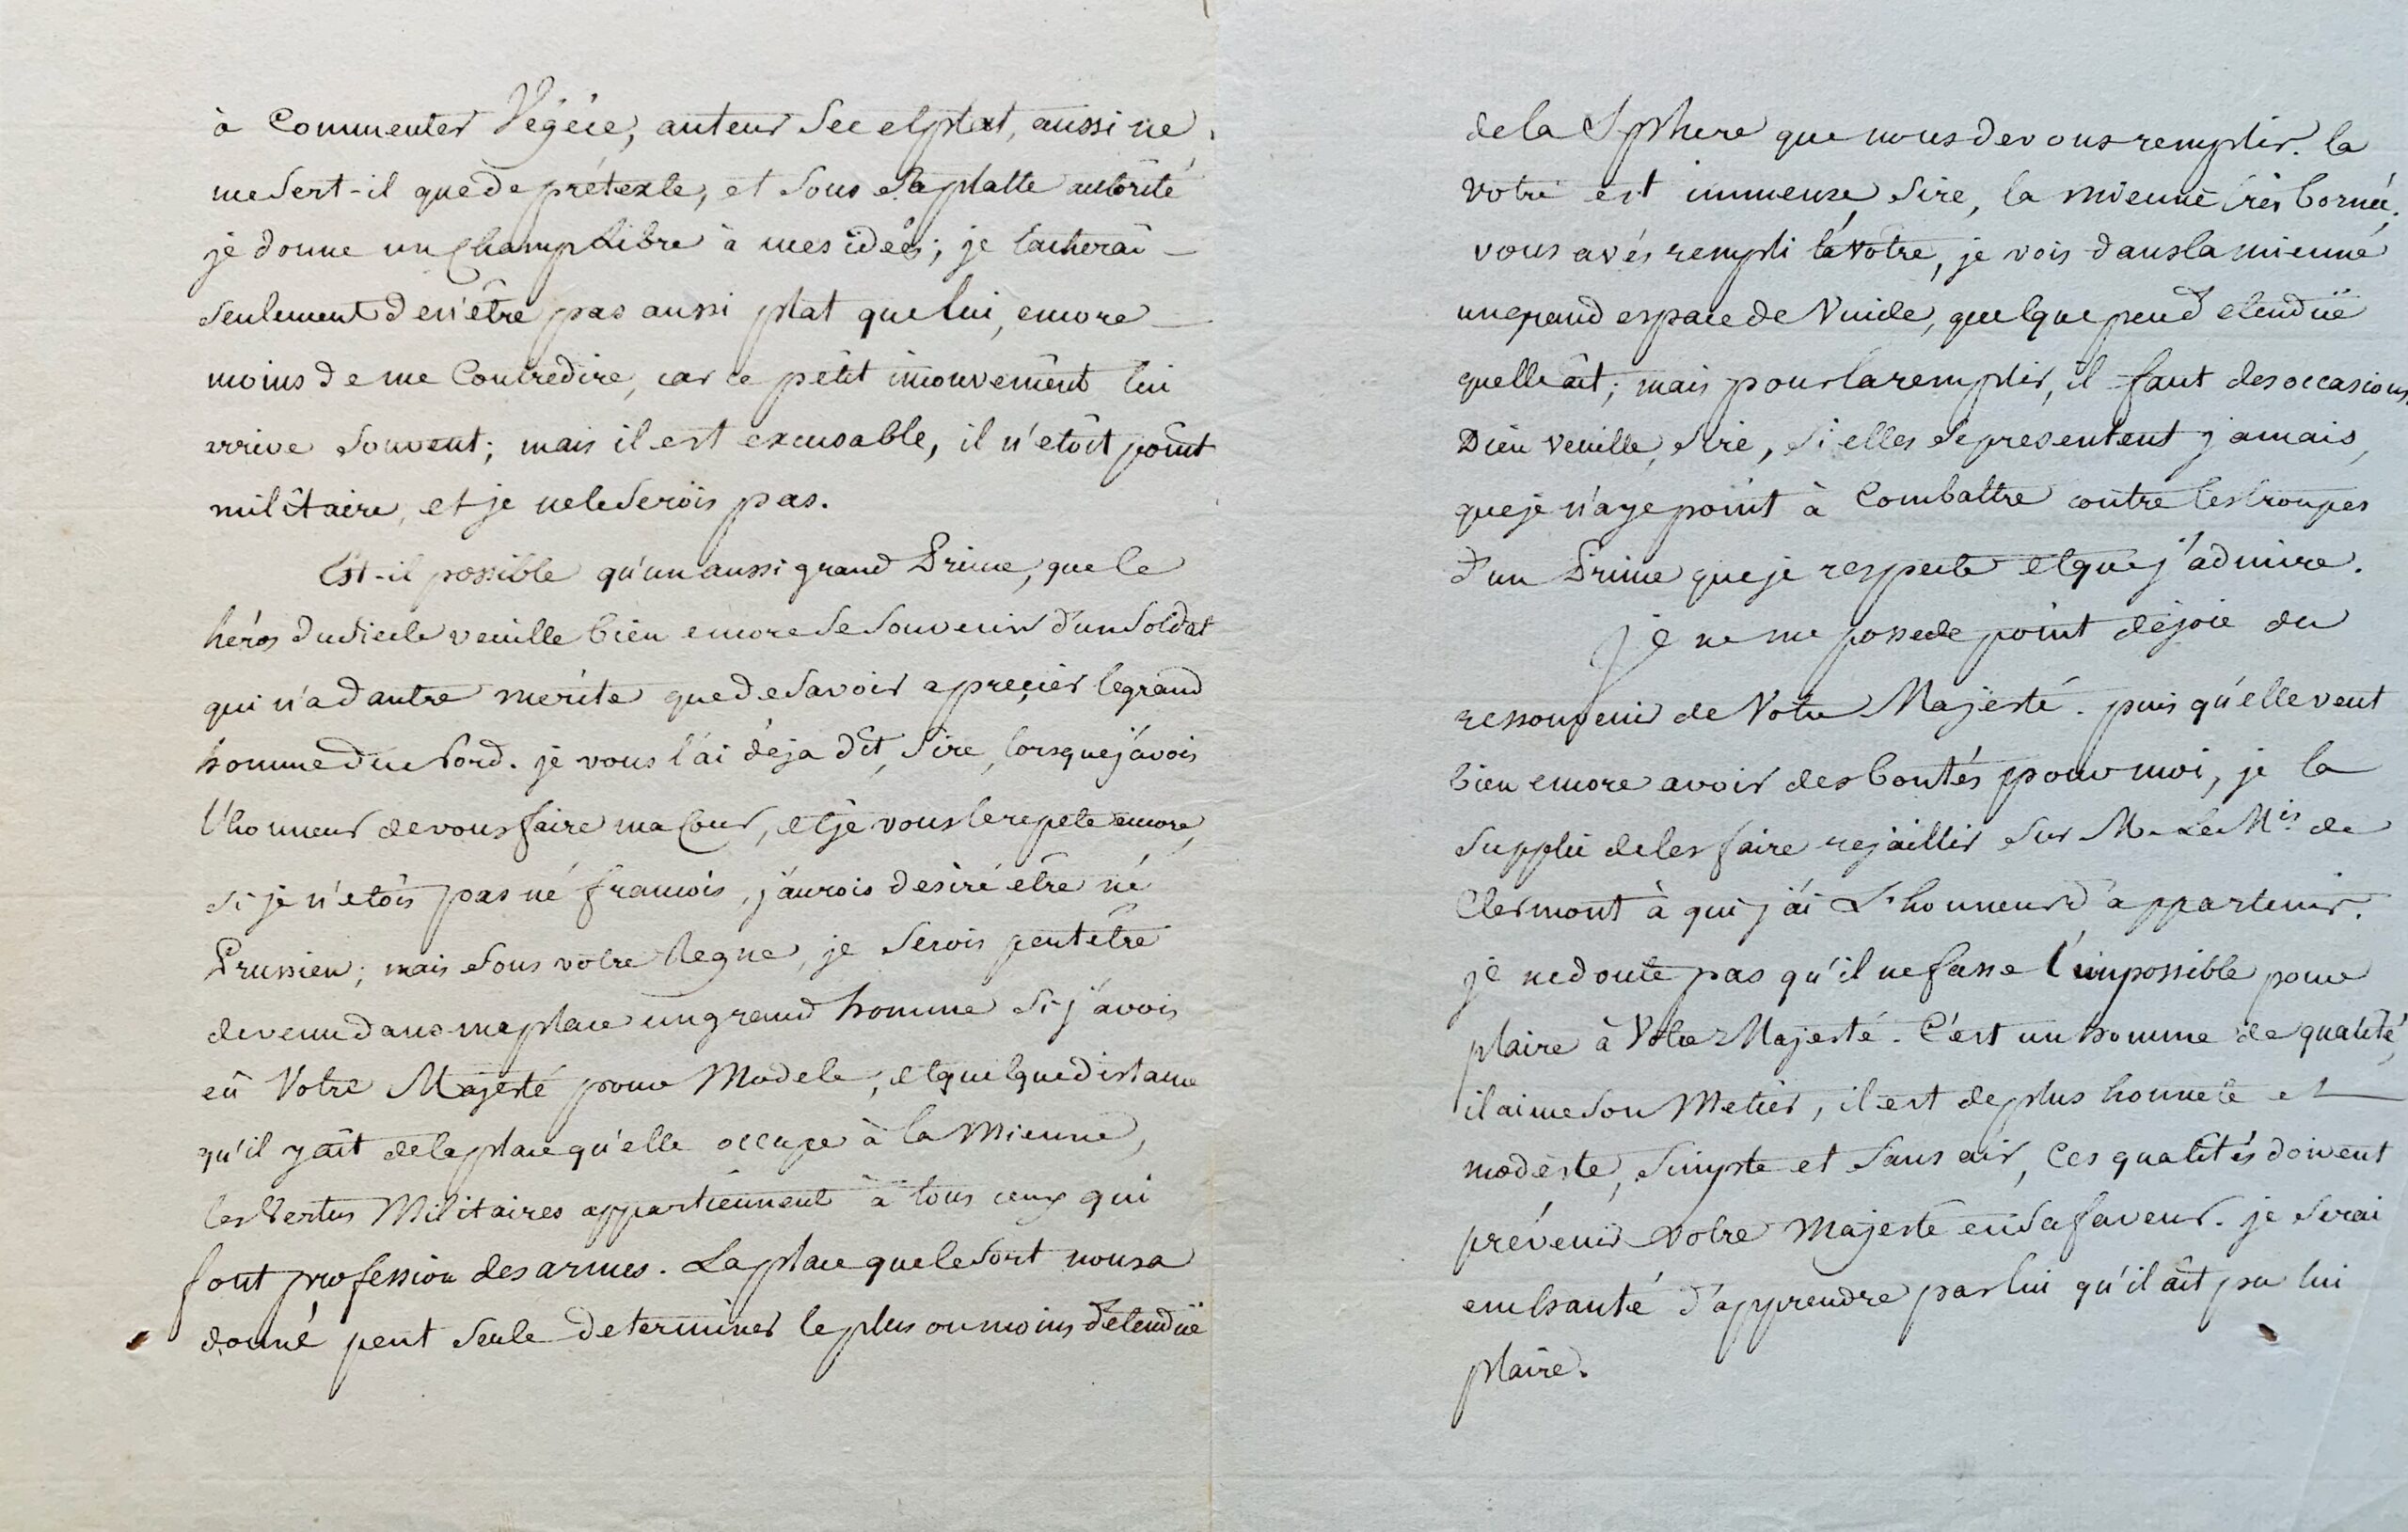 à Commenter Végéce, auteur Sec et plat, aussi ne
me Sert-il que de prétexte, et Sous Sa platte autorité
je donne un Champ Libre à mes idées; je tacherai
Seulement de n'être pas aussi plat que lui, encore
moins de me Contredire, car ce petit mouvement lui
arrive Souvent; mais il est excusable, il n'etoit point
militaire, et je ne le Serois pas.
Est-il possible qu'un aussi grand Prince, que le
héros du Siecle veuille bien encore Se Souvenir d'un Soldat
qui n'a d'autre merite que de Savoir aprecier le grand
homme du Nord. je vous l'ai déja dit, Sire, lorsque j'avois
l'honneur de vous faire ma Cour, et je vous le repete encore,
Si je n'etois pas né francois, j'aurois desiré être né
Prussien; mais Sous votre Regne, je Serois peut être
devenu dans ma place un grand homme Si j'avois
eû Votre Majesté pour Modele, et quelque distance
qu'il y ait de la place qu'elle occupe à la Mienne,
les Vertus Militaires appartiennent à tous ceux qui
font profession des armes. La place que le Sort nous a
donné peut Seule determiner le plus ou moins d'etenduë
de la Sphere que nous devons remplir. la
Votre est immense, Sire, la Mienne très bornée,
vous avés rempli la Votre, je vois dans la mienne
un grand espace de Vuide, quelque peu d'etenduë
quelle ait; mais pour la remplir, il faut des occasions.
Dieu veuille, Sire, Si elles Se presentent jamais,
que je n'aye point à Combattre contre les troupes
d'un Prince que je respecte et que j'admire.
Je ne me possede point de joie du
ressouvenir de Votre Majesté. puis qu'elle veut
bien encore avoir des bontés pour moi, je la
Supplie de les faire rejaillir Sur M. Le Mis. de
Clermont à qui j'ai L'honneur d'appartenir.
je ne doute pas qu'il ne fasse l'impossible pour
plaire à Votre Majesté. C'est un homme de qualité,
il aime Son Metier, il est de plus honnete et
modeste, Simple et Sans air, Ces qualités doivent
prévenir Votre Majesté en Sa faveur. je Serai
enchanté d'apprendre par lui qu'il ait pu lui
plaire.